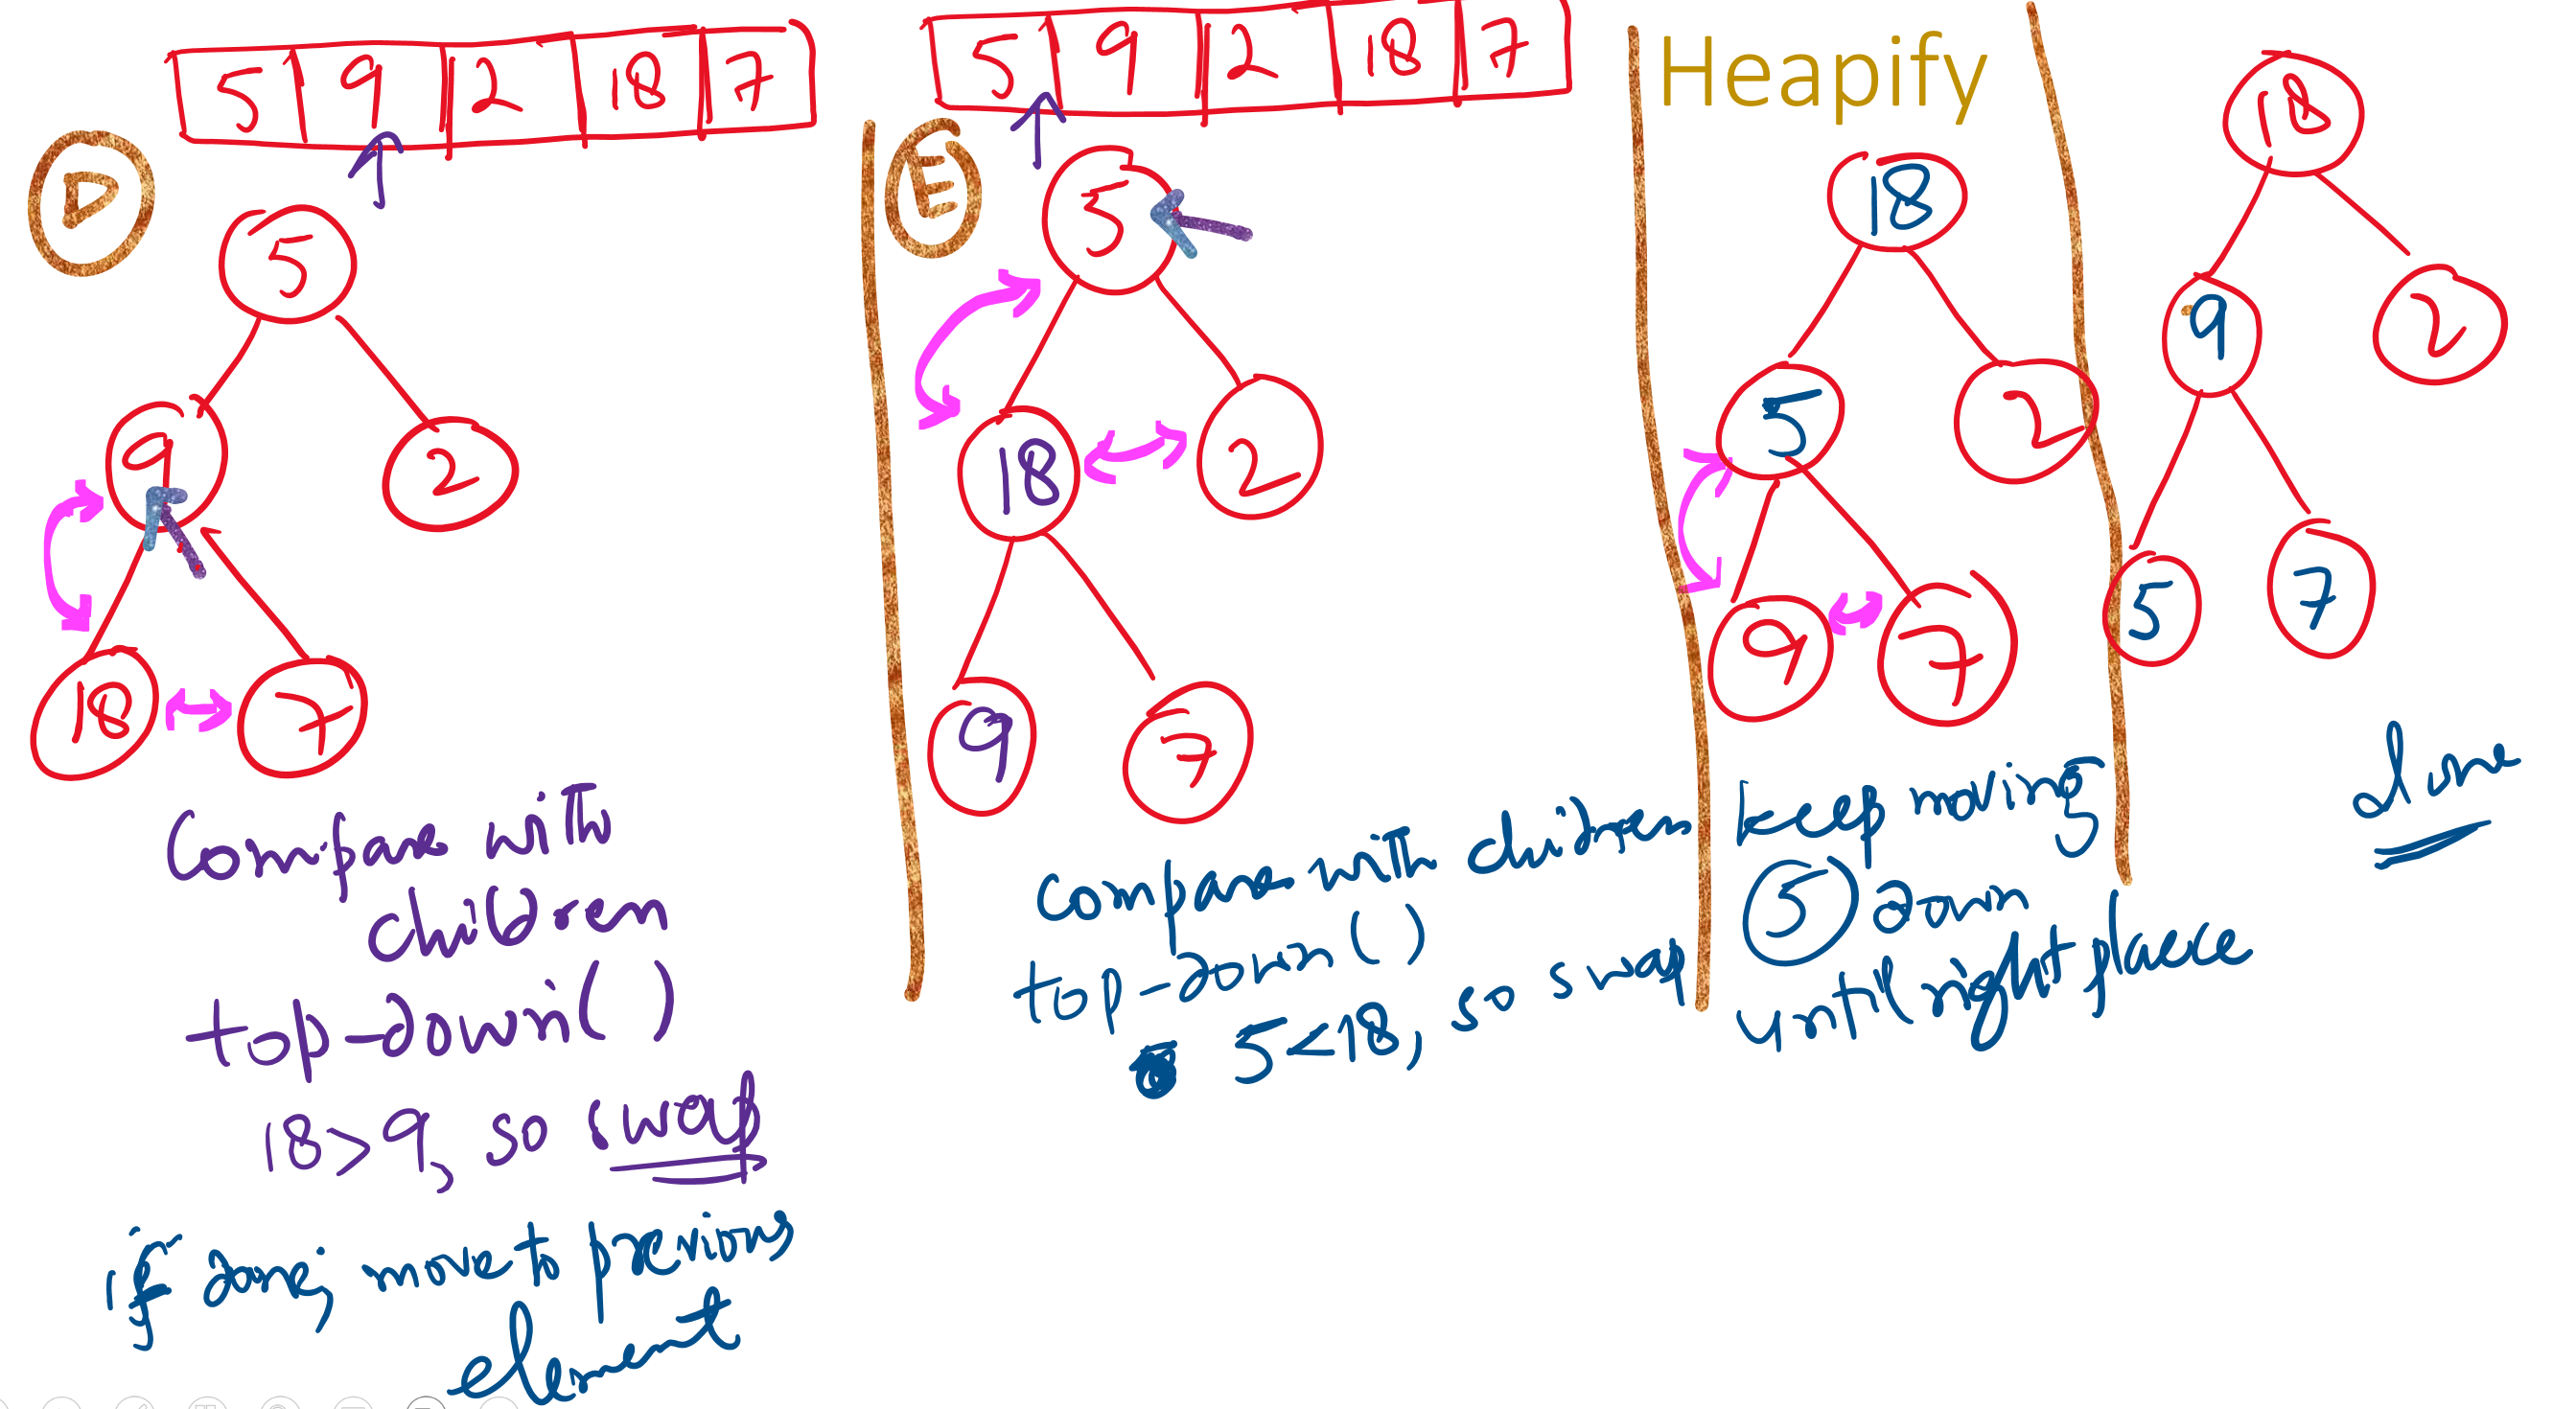 5 9 2 18 7
D
5
9 2
18 7
Compare with
children
top-down()
18>9, so swap
if done, move to previous
element
5 9 2 18 7
E
5
18 2
9 7
compare with children
top-down()
5<18, so swap
Heapify
18
5 2
9 7
keep moving
5 down
until right place
18
9 2
5 7
done